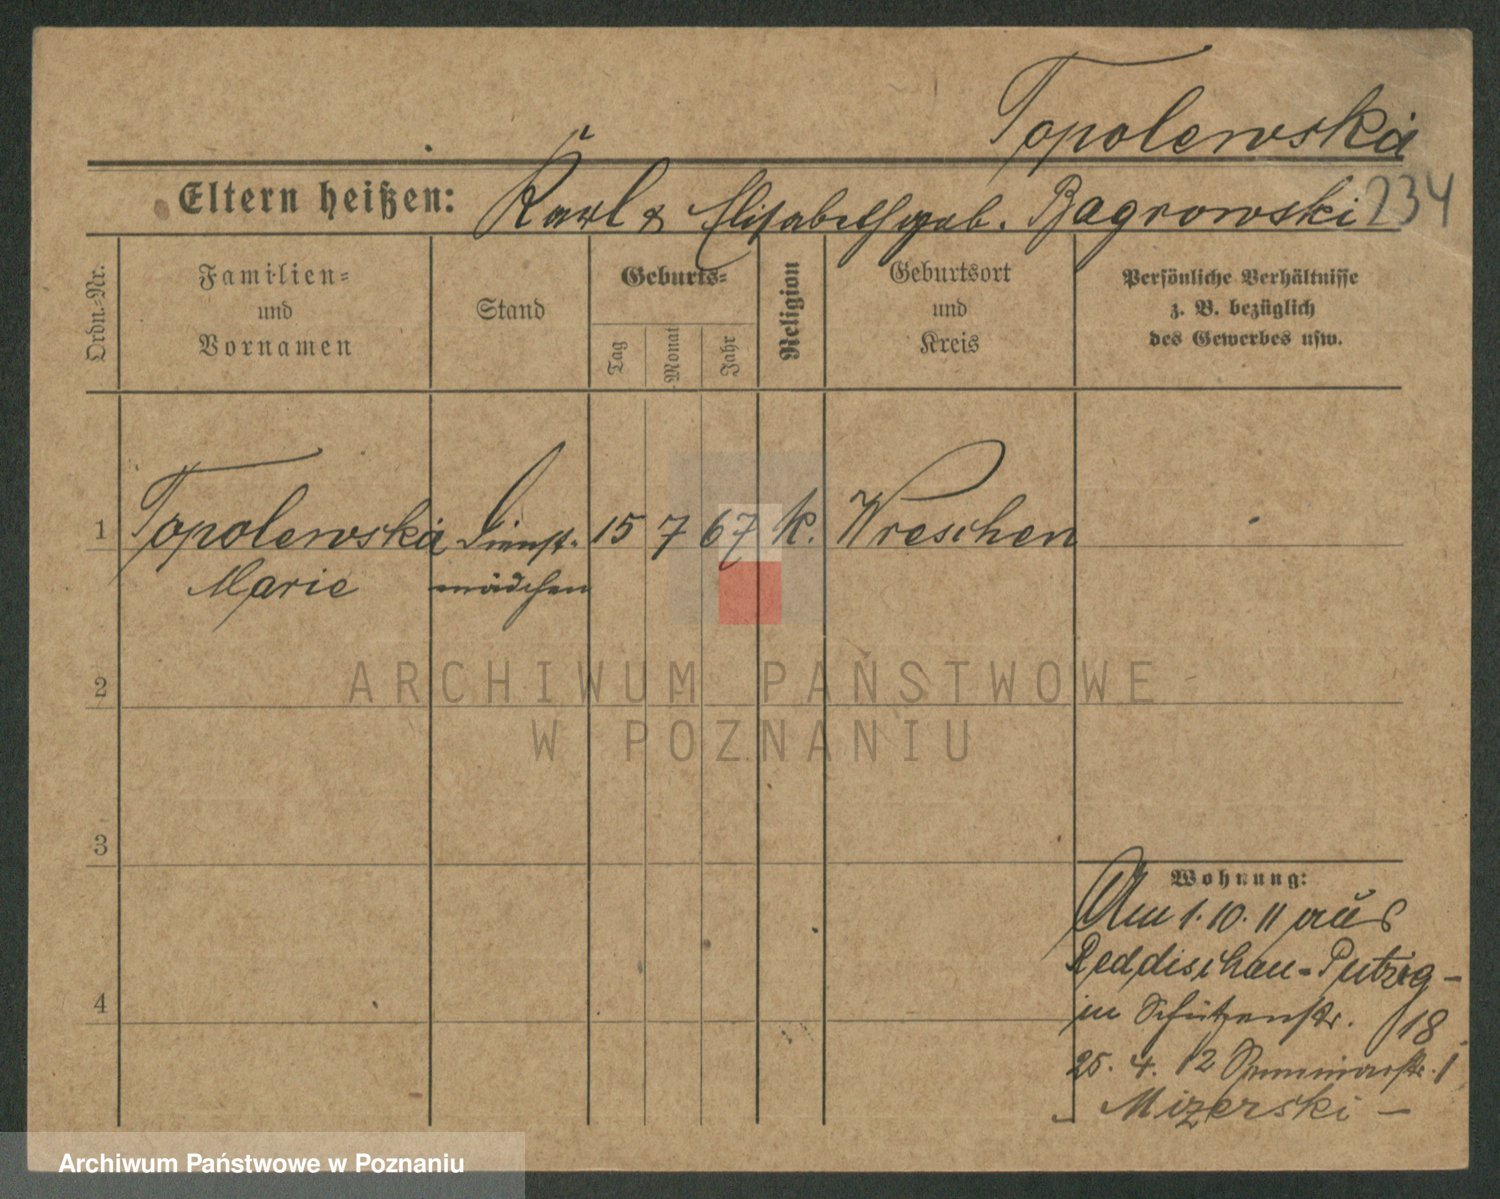 Topolewska
Eltern heißen: Karl & Elisabeth geb. Bagrowski 234
Ordn.-Nr.
Familien-
und
Vornamen
Stand
Geburts-
Tag
Monat
Jahr
Religion
Geburtsort
und
Kreis
Persönliche Verhältnisse
z. B. bezüglich
des Gewerbes usw.
1 Topolewska Dienst- 15 7 67 k. Wreschen
Marie mädchen
2
3
4
Wohnung:
Am 1. 10. 11 aus
Reddischau - Putzig -
in Schützenstr. 18
25. 4. 12 Seminarstr. 1
- Mizerski -
ARCHIWUM PAŃSTWOWE
W POZNANIU
Archiwum Państwowe w Poznaniu